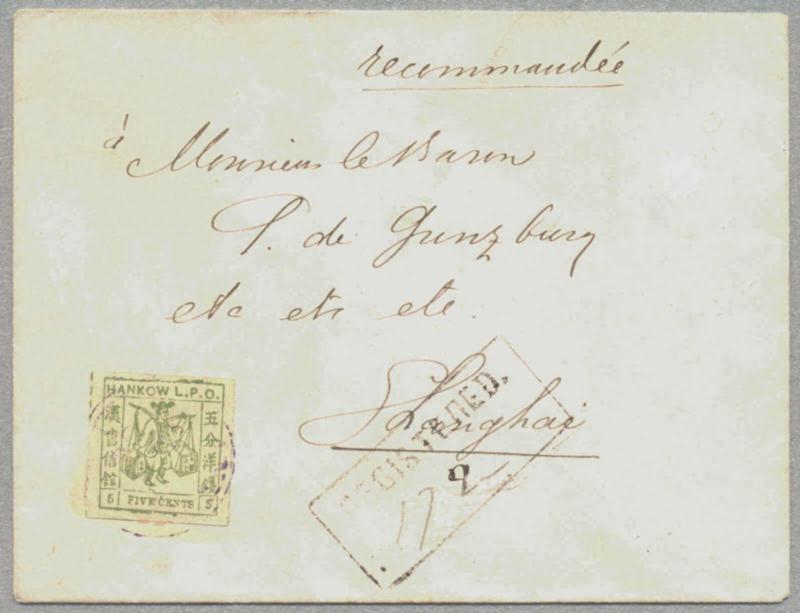 recommandée
à Monsieur le Baron
de Gunzburg
etc etc etc.
Shanghai
REGISTERED.
HANKOW L.P.O.
漢口書信館
五分洋銀
5 FIVE CENTS 5